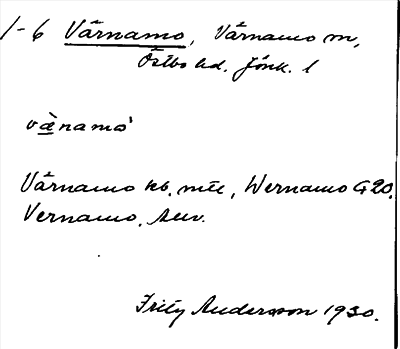 1-6 Värnamo, Värnamo m,
Östbo hd. Jönk. l
vä̀namó
Värnamo kb, mtl, Wernamo G20.
Vernamo,
Fritz Andersson 1930.